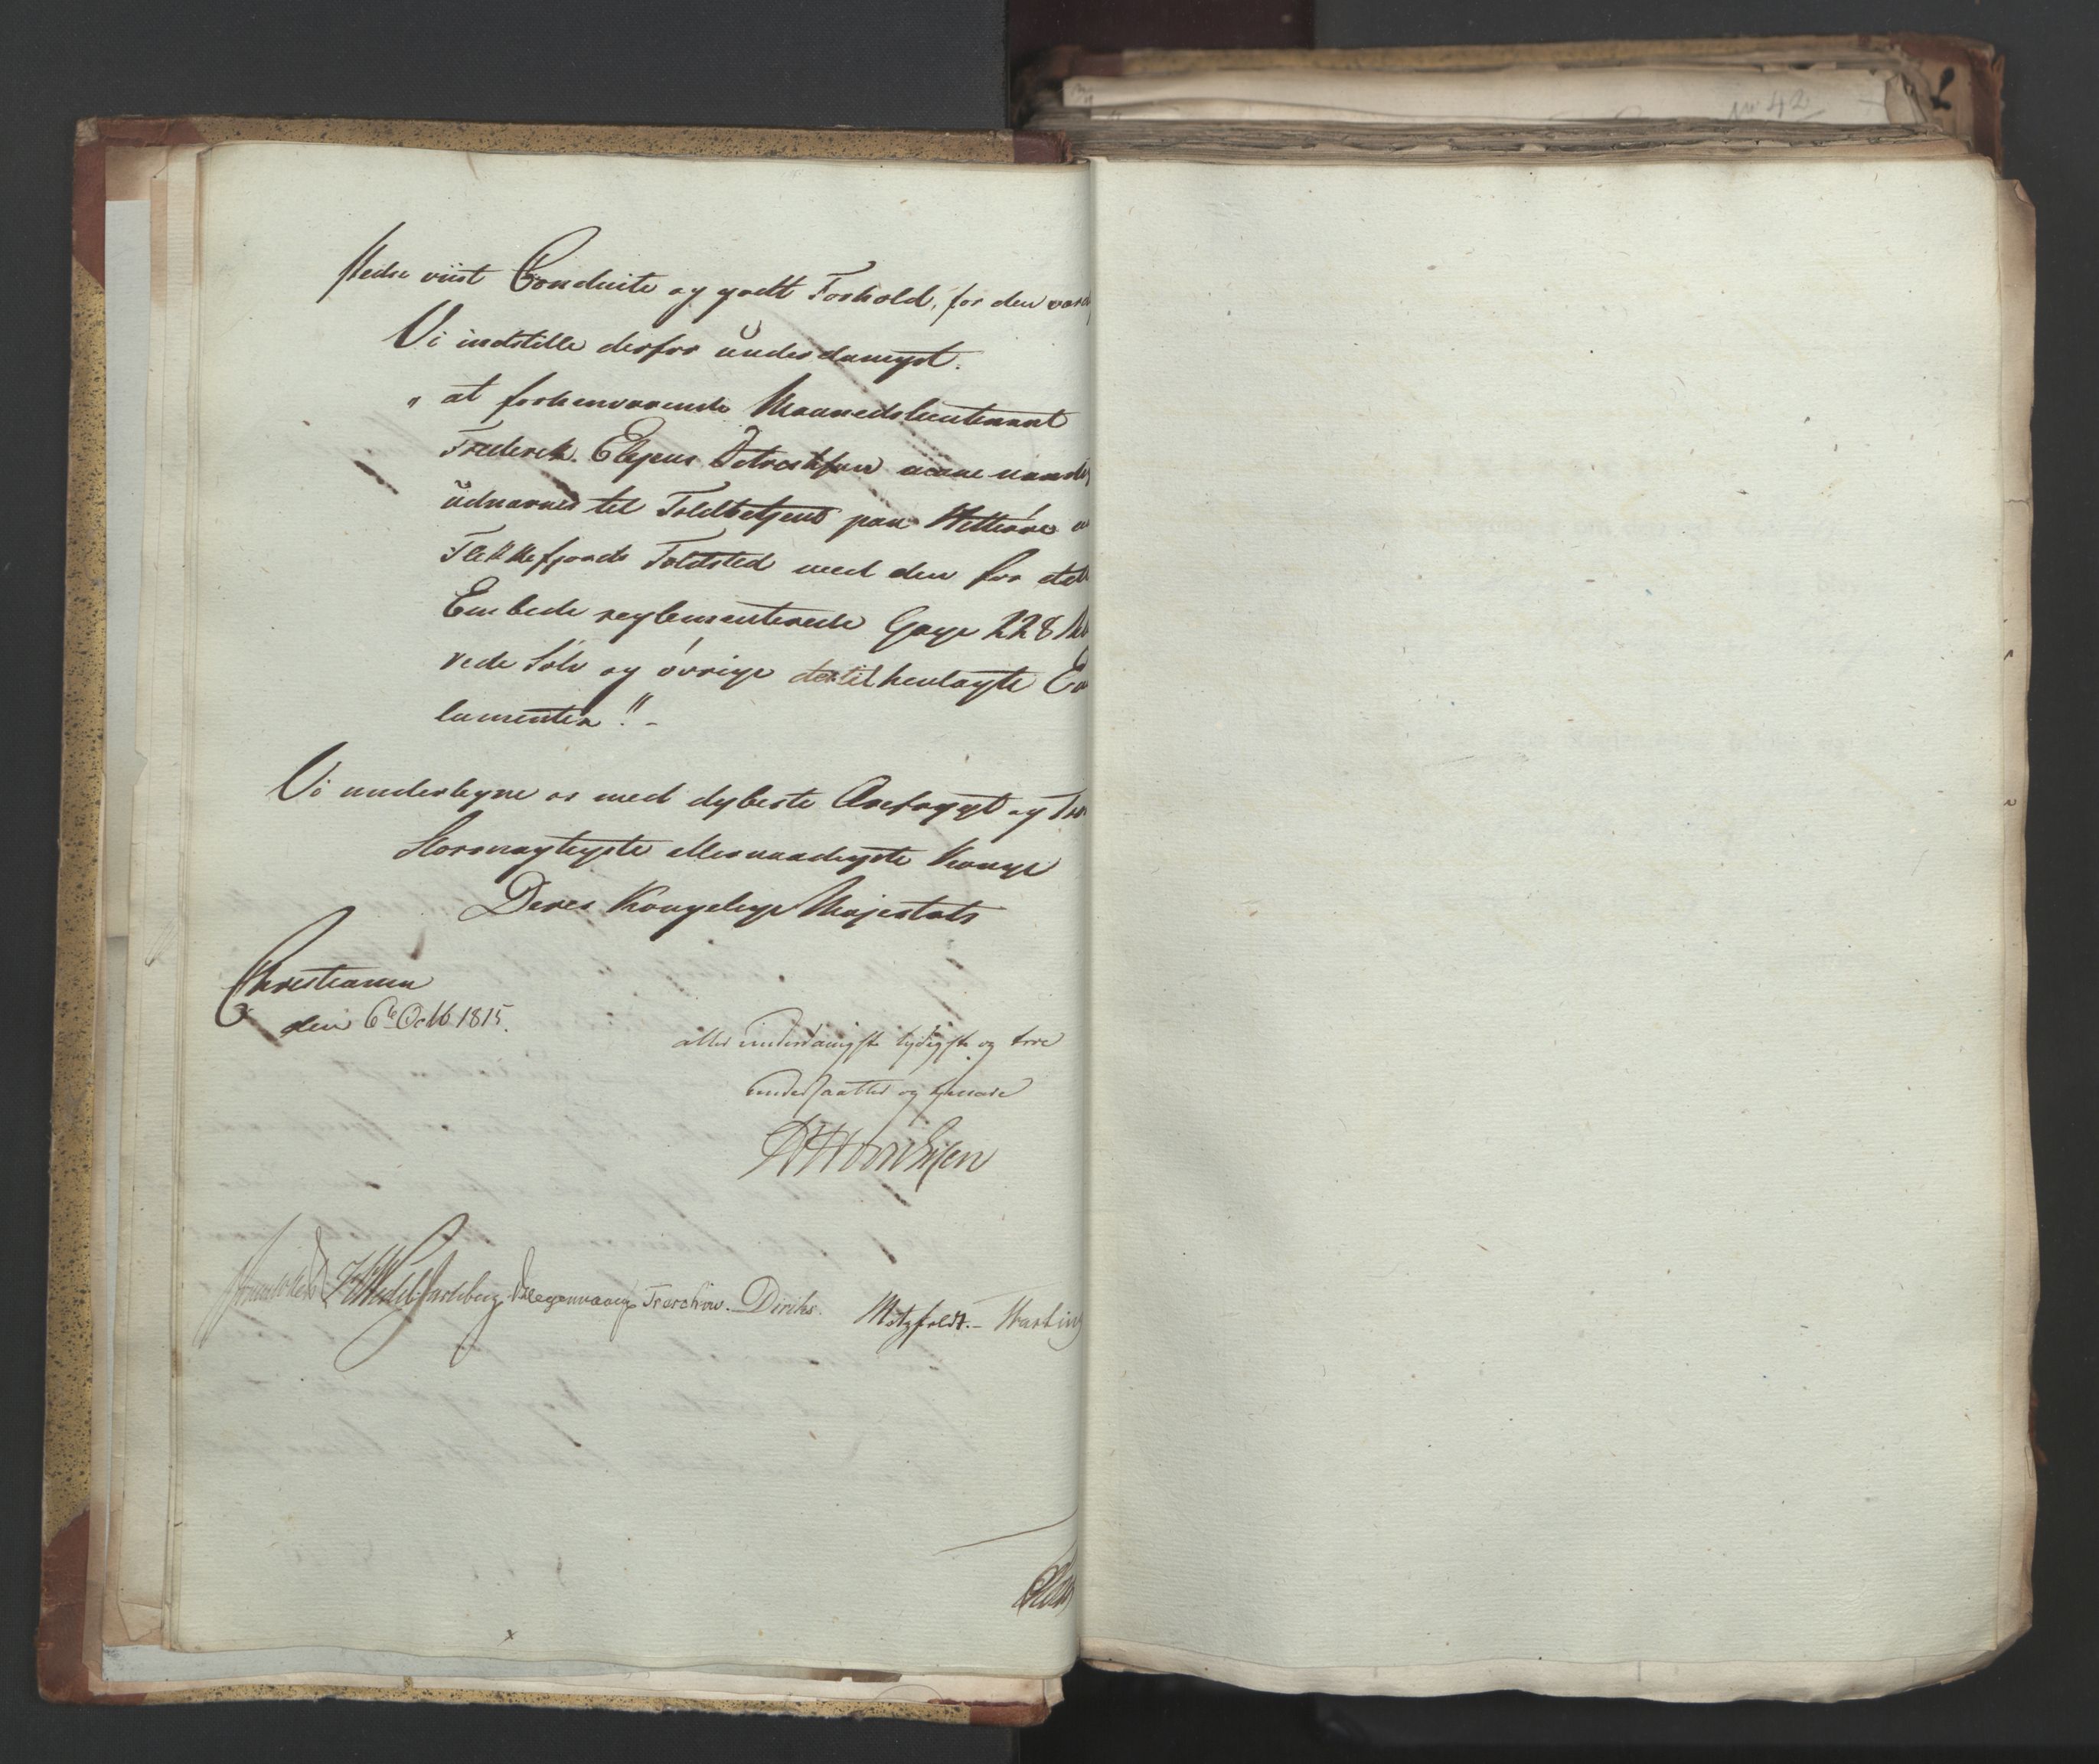 stedse viist Conduite og godt Forhold, for den
Vi indstille derfor underdanigst.
" at forhenværende Maanedslieutenant
Frederik maae naadigst
udnævnes til Toldbetjent paa Hitterøe
Flekkefjords Toldsted med den for dette
Embede reglementerede Gage 228
rede Sølv og øvrige dertil henlagte
lumenter." -
Vi undertegne os med dybeste Ærefrygt og
Stormægtigste allernaadigste Konge
Deres Kongelige Majestæts
Christiania
den 6te Octb 1815.
aller underdanigste lydigste og troe
undersaatter og tjenere
Sommerhielm HWedel Jarlsberg Krogh Treschow. Diriks. Motzfeldt. - Hasting
nr 42